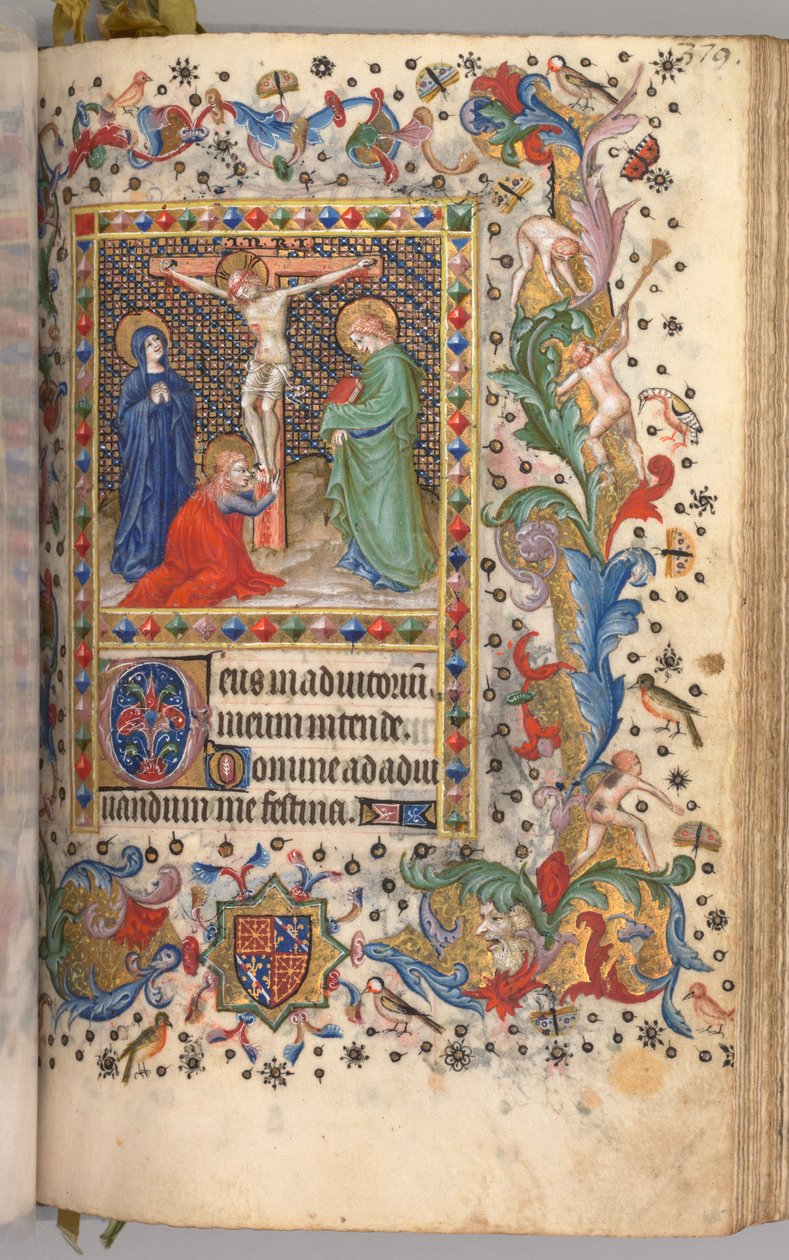 379.
I.N.R.I.
Deus in adiutoriū.
meum intende.
Domine ad adiu
uandum me festina.